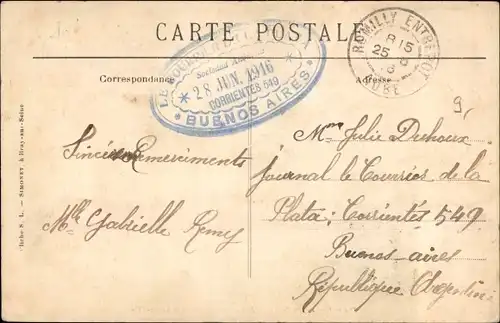 CARTE POSTALE
Correspondance
Adresse
LE COURRIER DE LA PLATA
Sociedad
28 JUN. 1916
CORRIENTES 549
BUENOS AIRES
ROMILLY ENTREPOT
815
25
AUBE
9.
Mme Julie Duhoux
Journal le Courrier de la
Plata; Corrientes 549
Buenos aires
République Argentine
Sincères Remerciments
Mlle Gabrielle Remy
Cliché S. L. - SIMONET à Bray-sur-Seine